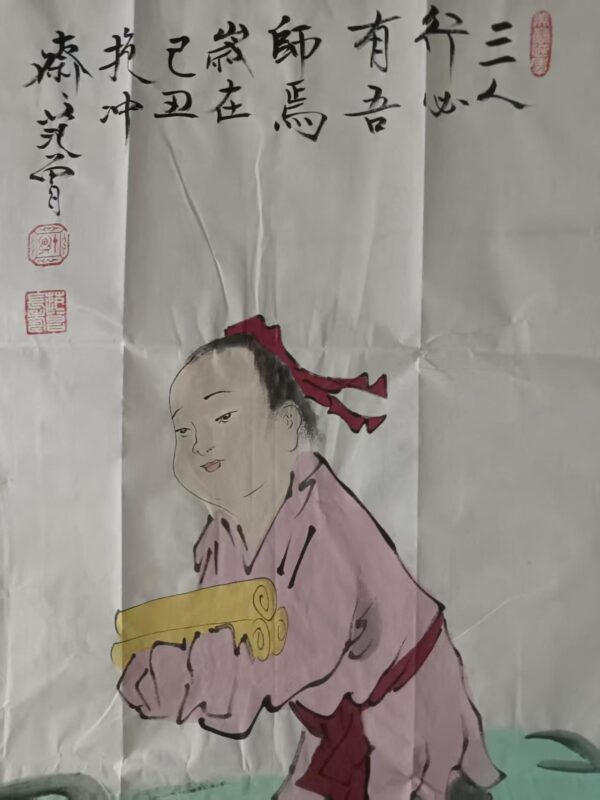 三人
行必
有吾
師焉
歲在
己丑
抱冲
齋主范曾